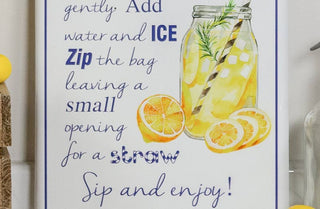 gently. Add
water and ICE
Zip the bag
leaving a
small
opening
for a straw
Sip and enjoy!